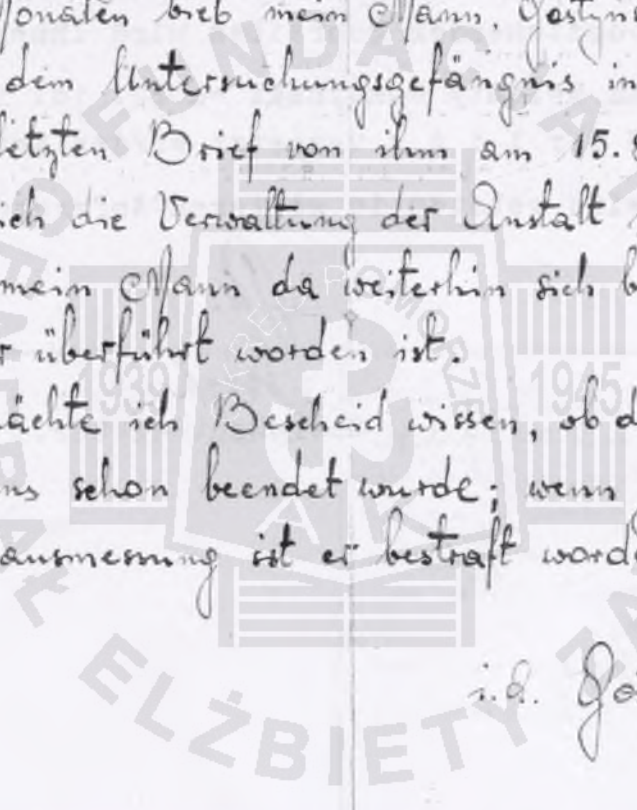 onaten bieb mein Mann, Gostyn
dem Untersuchungsgefängnis in
letzten Brief von ihm am 15.
ich die Verwaltung der Anstalt
mein Mann da weiterhin sich b
r überführt worden ist.
ächte ich Bescheid wissen, ob d
ns schon beendet wurde; wenn
ausmessung ist er bestraft word
i.A. Go
FUNDACJA
1939 1945
AK
POMORZE
ELŻBIETY
ZA